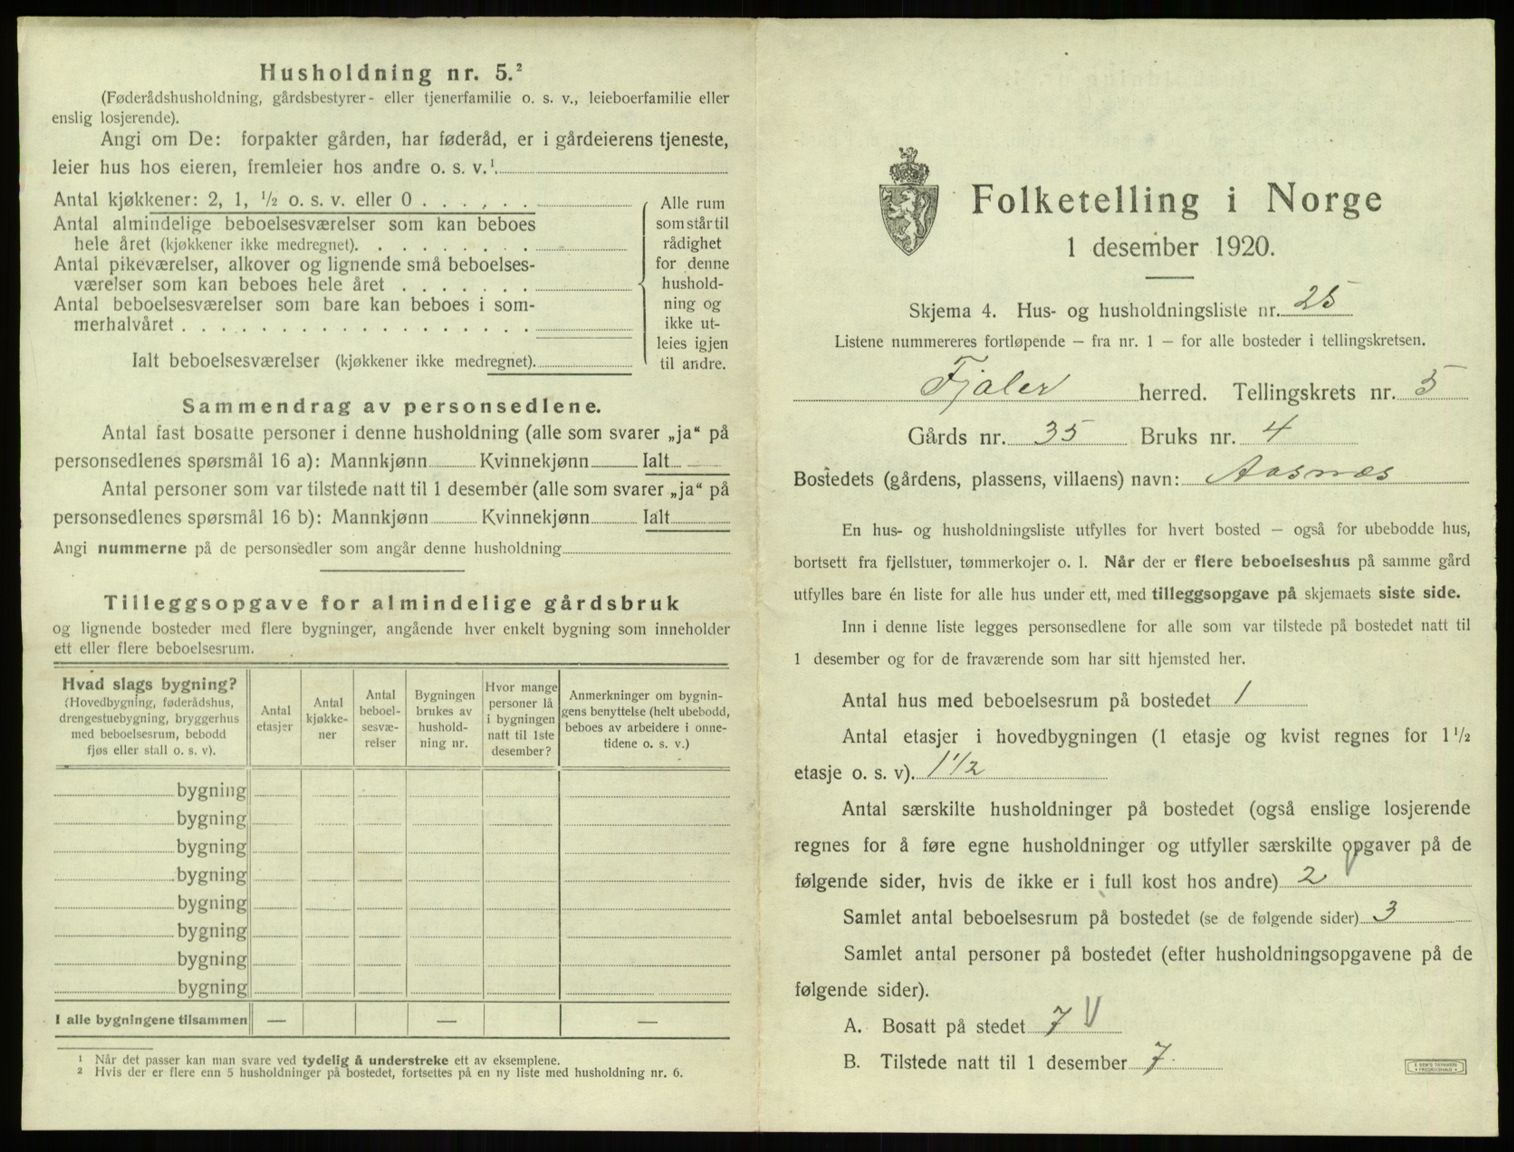 Husholdning nr. 5.²
(Føderådshusholdning, gårdsbestyrer- eller tjenerfamilie o. s. v., leieboerfamilie eller
enslig losjerende).
Angi om De: forpakter gården, har føderåd, er i gårdeierens tjeneste,
leier hus hos eieren, fremleier hos andre o. s. v.¹
Antal kjøkkener: 2, 1, ½ o. s. v. eller 0 . . . . . .
Antal almindelige beboelsesværelser som kan beboes
hele året (kjøkkener ikke medregnet). . . . . . . . .
Antal pikeværelser, alkover og lignende små beboelses-
værelser som kan beboes hele året . . . . . . .
Antal beboelsesværelser som bare kan beboes i som-
merhalvåret . . . . . . . . . . . . . . . . . .
Ialt beboelsesværelser (kjøkkener ikke medregnet).
Alle rum
som står til
rådighet
for denne
hushold-
ning og
ikke ut-
leies igjen
til andre.
Sammendrag av personsedlene.
Antal fast bosatte personer i denne husholdning (alle som svarer „ja" på
personsedlenes spørsmål 16 a): Mannkjønn Kvinnekjønn Ialt
Antal personer som var tilstede natt til 1 desember (alle som svarer „ja" på
personsedlenes spørsmål 16 b): Mannkjønn Kvinnekjønn Ialt
Angi nummerne på de personsedler som angår denne husholdning
Tilleggsopgave for almindelige gårdsbruk
og lignende bosteder med flere bygninger, angående hver enkelt bygning som inneholder
ett eller flere beboelsesrum.
Hvad slags bygning?
(Hovedbygning, føderådshus,
drengestuebygning, bryggerhus
med beboelsesrum, bebodd
fjøs eller stall o. s. v).
Antal
etasjer
Antal
kjøkke-
ner
Antal
beboel-
sesvæ-
relser
Bygningen
brukes av
hushold-
ning nr.
Hvor mange
personer lå
i bygningen
natt til 1ste
desember?
Anmerkninger om bygnin-
gens benyttelse (helt ubebodd,
beboes av arbeidere i onne-
tidene o. s. v.)
bygning
bygning
bygning
bygning
bygning
bygning
bygning
bygning
I alle bygningene tilsammen — — —
¹ Når det passer kan man svare ved tydelig å understreke ett av eksemplene.
² Hvis der er flere enn 5 husholdninger på bostedet, fortsettes på en ny liste med husholdning nr. 6.
Folketelling i Norge
1 desember 1920.
Skjema 4. Hus- og husholdningsliste nr. 25
Listene nummereres fortløpende – fra nr. 1 – for alle bosteder i tellingskretsen.
Fjaler herred. Tellingskrets nr. 5
Gårds nr. 35 Bruks nr. 4
Bostedets (gårdens, plassens, villaens) navn: Aasnæs
En hus- og husholdningsliste utfylles for hvert bosted – også for ubebodde hus,
bortsett fra fjellstuer, tømmerkojer o. l. Når der er flere beboelseshus på samme gård
utfylles bare én liste for alle hus under ett, med tilleggsopgave på skjemaets siste side.
Inn i denne liste legges personsedlene for alle som var tilstede på bostedet natt til
1 desember og for de fraværende som har sitt hjemsted her.
Antal hus med beboelsesrum på bostedet 1
Antal etasjer i hovedbygningen (1 etasje og kvist regnes for 1½
etasje o. s. v). 1½
Antal særskilte husholdninger på bostedet (også enslige losjerende
regnes for å føre egne husholdninger og utfyller særskilte opgaver på de
følgende sider, hvis de ikke er i full kost hos andre) 2
Samlet antal beboelsesrum på bostedet (se de følgende sider) 3
Samlet antal personer på bostedet (efter husholdningsopgavene på de
følgende sider).
A. Bosatt på stedet 7
B. Tilstede natt til 1 desember 7